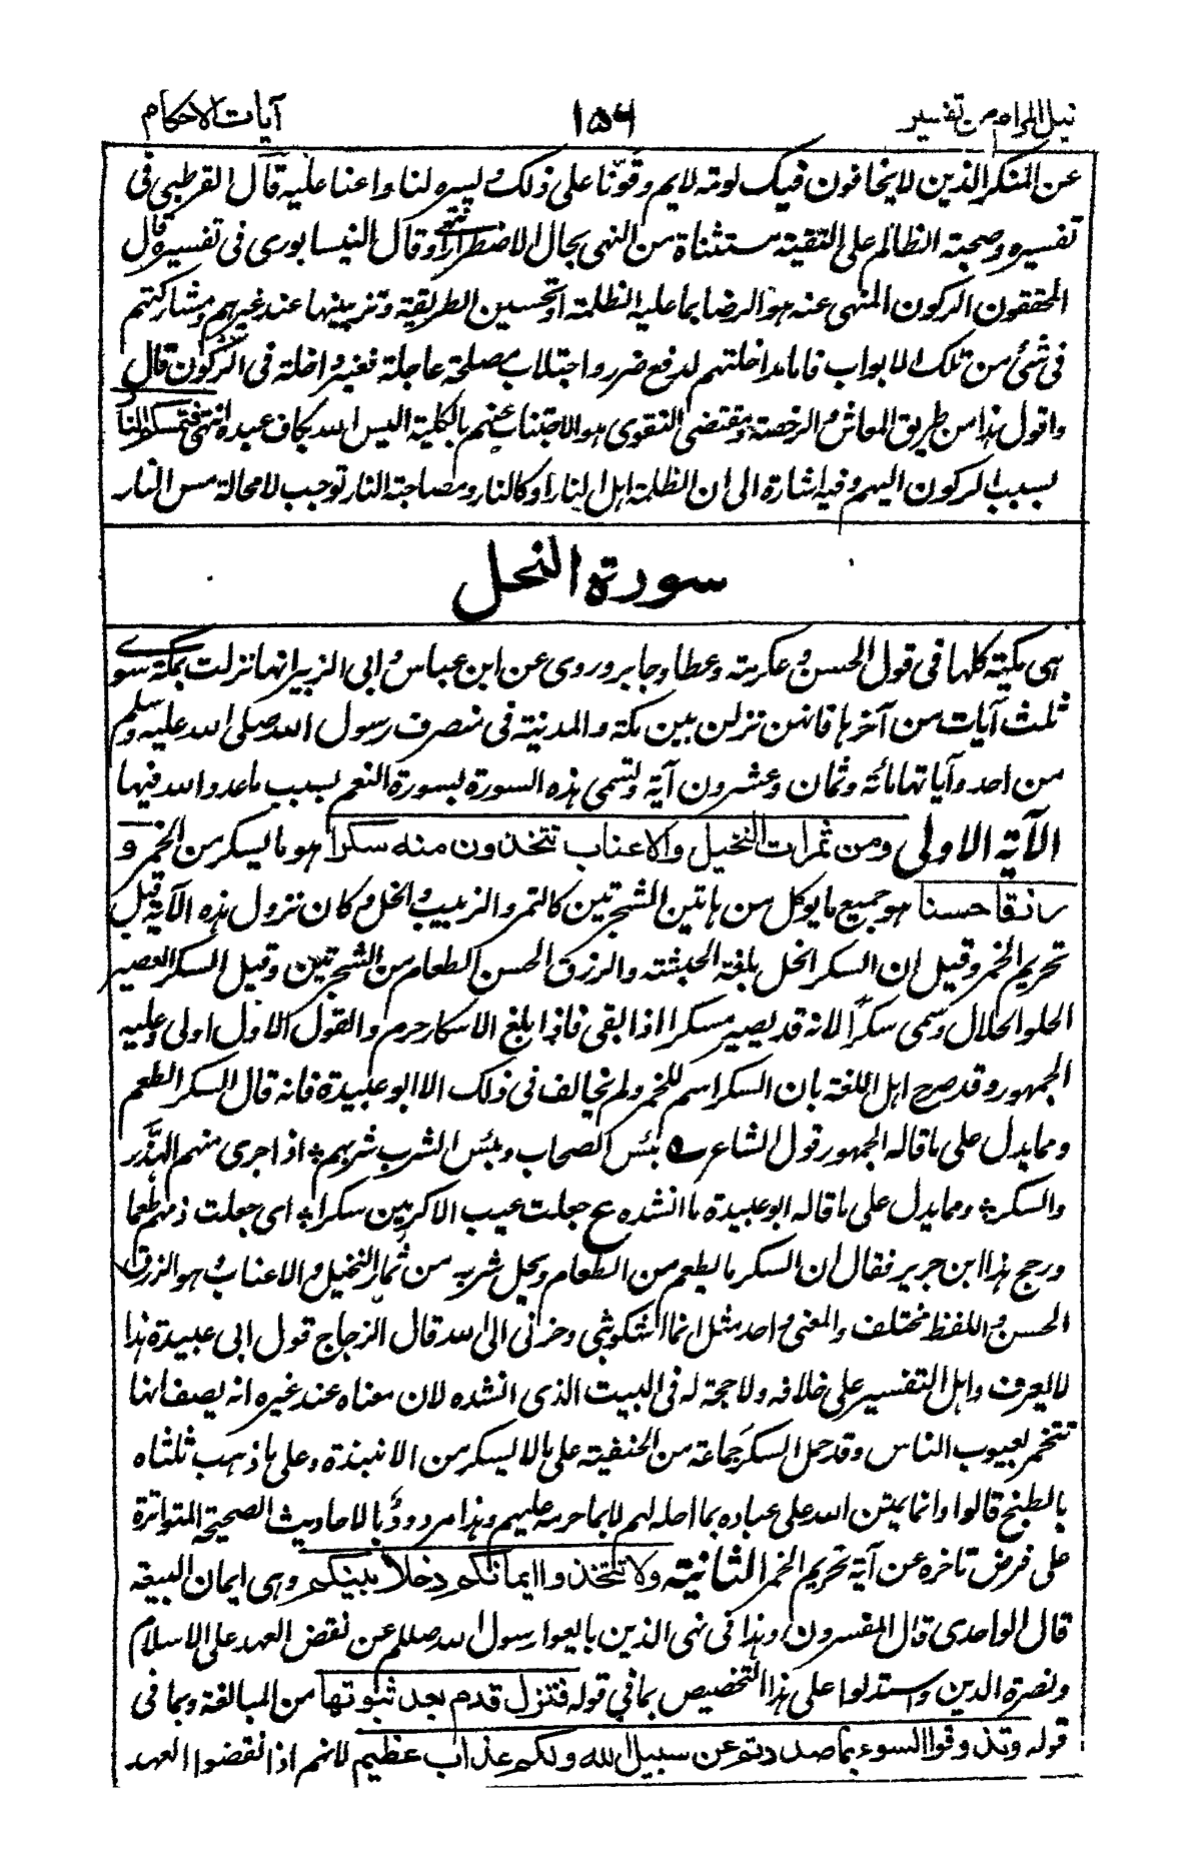 نيل المرام من تفسير ١٥٦ آيات الاحكام
عن المنكر الذين لا يخافون فيك لومة لايم وقونا على ذلك ويسره لنا واعنا عليه قال القرطبى فى
تفسيره وصحبة الظالم على التقية مستثناة من النهى بحال الاضطرار انتهى وقال النيسابورى فى تفسيره قال
المحققون الركون المنهى عنه هو الرضا بما عليه الظلمة او تحسين الطريقة وتزيينها عند غيرهم ومشاركتهم
فى شئ من تلك الابواب فاما مداخلتهم لدفع ضرر واجتلاب مصلحة عاجلة فغير داخلة فى الركون قال
واقول هذا من طريق المعاش والرخصة ومقتضى التقوى هو الاجتناب عنهم بالكلية اليس الله بكاف عبده انتهى فتمسكم النار
بسبب الركون اليهم وفيه اشارة الى ان الظلمة اهل النار او كالنار ومصاحبة النار توجب لامحالة مس النار
سورة النحل
هى مكية كلها فى قول الحسن وعكرمة وعطا وجابر وروى عن ابن عباس وابى الزبير انها نزلت بمكة سوى
ثلث آيات من آخرها فانهن نزلن بين مكة والمدينة فى منصرف رسول الله صلى الله عليه وسلم
من احد وآياتها مائة وثمان وعشرون آية وتسمى هذه السورة بسورة النعم بسبب ما عدد الله فيها
الآية الاولى ومن ثمرات النخيل والاعناب تتخذون منه سكرا هو ما يسكر من الخمر و
رزقا حسنا هو جميع ما يوكل من هاتين الشجرتين كالتمر والزبيب والخل وكان نزول هذه الآية قبل
تحريم الخمر وقيل ان السكر الخل بلغة الحبشة والرزق الحسن الطعام من الشجرتين وقيل السكر العصير
الحلو الحلال وسمى سكرا لانه قد يصير مسكرا اذا بقى فاذا بلغ الاسكار حرم والقول الاول اولى وعليه
الجمهور وقد صرح اهل اللغة بان السكر اسم للخمر ولم يخالف فى ذلك الا ابو عبيدة فانه قال السكر الطعم
ومما يدل على ما قاله الجمهور قول الشاعر ه بئس الصحاب وبئس الشرب شربهم ۞ اذا جرى منهم الهذر
والسكر ۞ ومما يدل على ما قاله ابو عبيدة ما انشده ع جعلت عيب الاكرمين سكرا ۞ اى جعلت ذمهم طعما
ورجح هذا ابن جرير فقال ان السكر ما يطعم من الطعام ويحل شربه من ثمار النخيل والاعناب وهو الرزق
الحسن واللفظ مختلف والمعنى واحد مثل انما اشكو بثى وحزنى الى الله قال الزجاج قول ابى عبيدة هذا
لا يعرف واهل التفسير على خلافه ولا حجة له فى البيت الذى انشده لان معناه عند غيره انه يصف انها
تتخمر بعيوب الناس وقد حمل السكر جماعة من الحنفية على ما لا يسكر من الانبذة وعلى ما ذهب ثلثاه
بالطبخ قالوا وانما يمتن الله على عباده بما احله لهم لا بما حرمه عليهم وهذا مردود بالاحاديث الصحيحة المتواترة
على فرض تاخره عن آية تحريم الخمر الثانية ولا تتخذوا ايمانكم دخلا بينكم وهى ايمان البيعة
قال الواحدى قال المفسرون وهذا فى نهى الذين بايعوا رسول الله صللم عن نقض العهد على الاسلام
ونصرة الدين واستدلوا على هذا التخصيص بما فى قوله فتزل قدم بعد ثبوتها من المبالغة وبما فى
قوله وتذوقوا السوء بما صددتم عن سبيل الله ولكم عذاب عظيم لانهم اذا نقضوا العهد